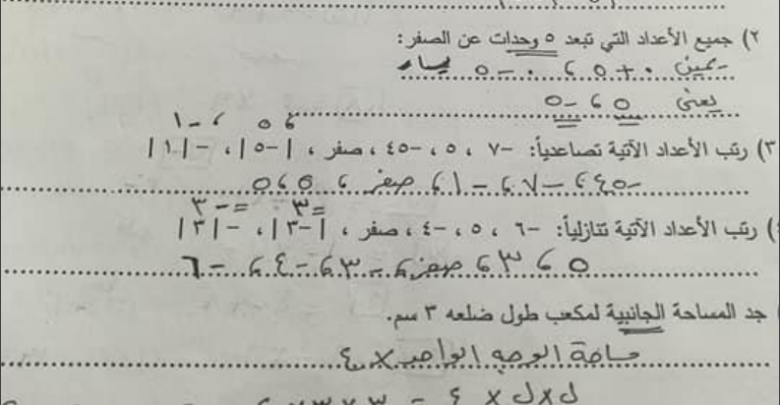 ٢) جميع الأعداد التي تبعد ٥ وحدات عن الصفر:
يمين ٠+٥ ، ٠-٥ يسار
يعني ٥ ، -٥
٥ ، -١
٣) رتب الأعداد الآتية تصاعدياً: -٧ ، ٥ ، -٤٥ ، صفر ، |-٥| ، -|١|
-٤٥ ، -٧ ، -١ ، صفر ، ٥ ، ٥
=٣ =-٣
) رتب الأعداد الآتية تنازلياً: -٦ ، ٥ ، -٤ ، صفر ، |-٣| ، -|٣|
٥ ، ٣ ، صفر ، -٣ ، -٤ ، -٦
جد المساحة الجانبية لمكعب طول ضلعه ٣ سم.
مساحة الوجه الواحد × ٤
ل×ل× ٤ =